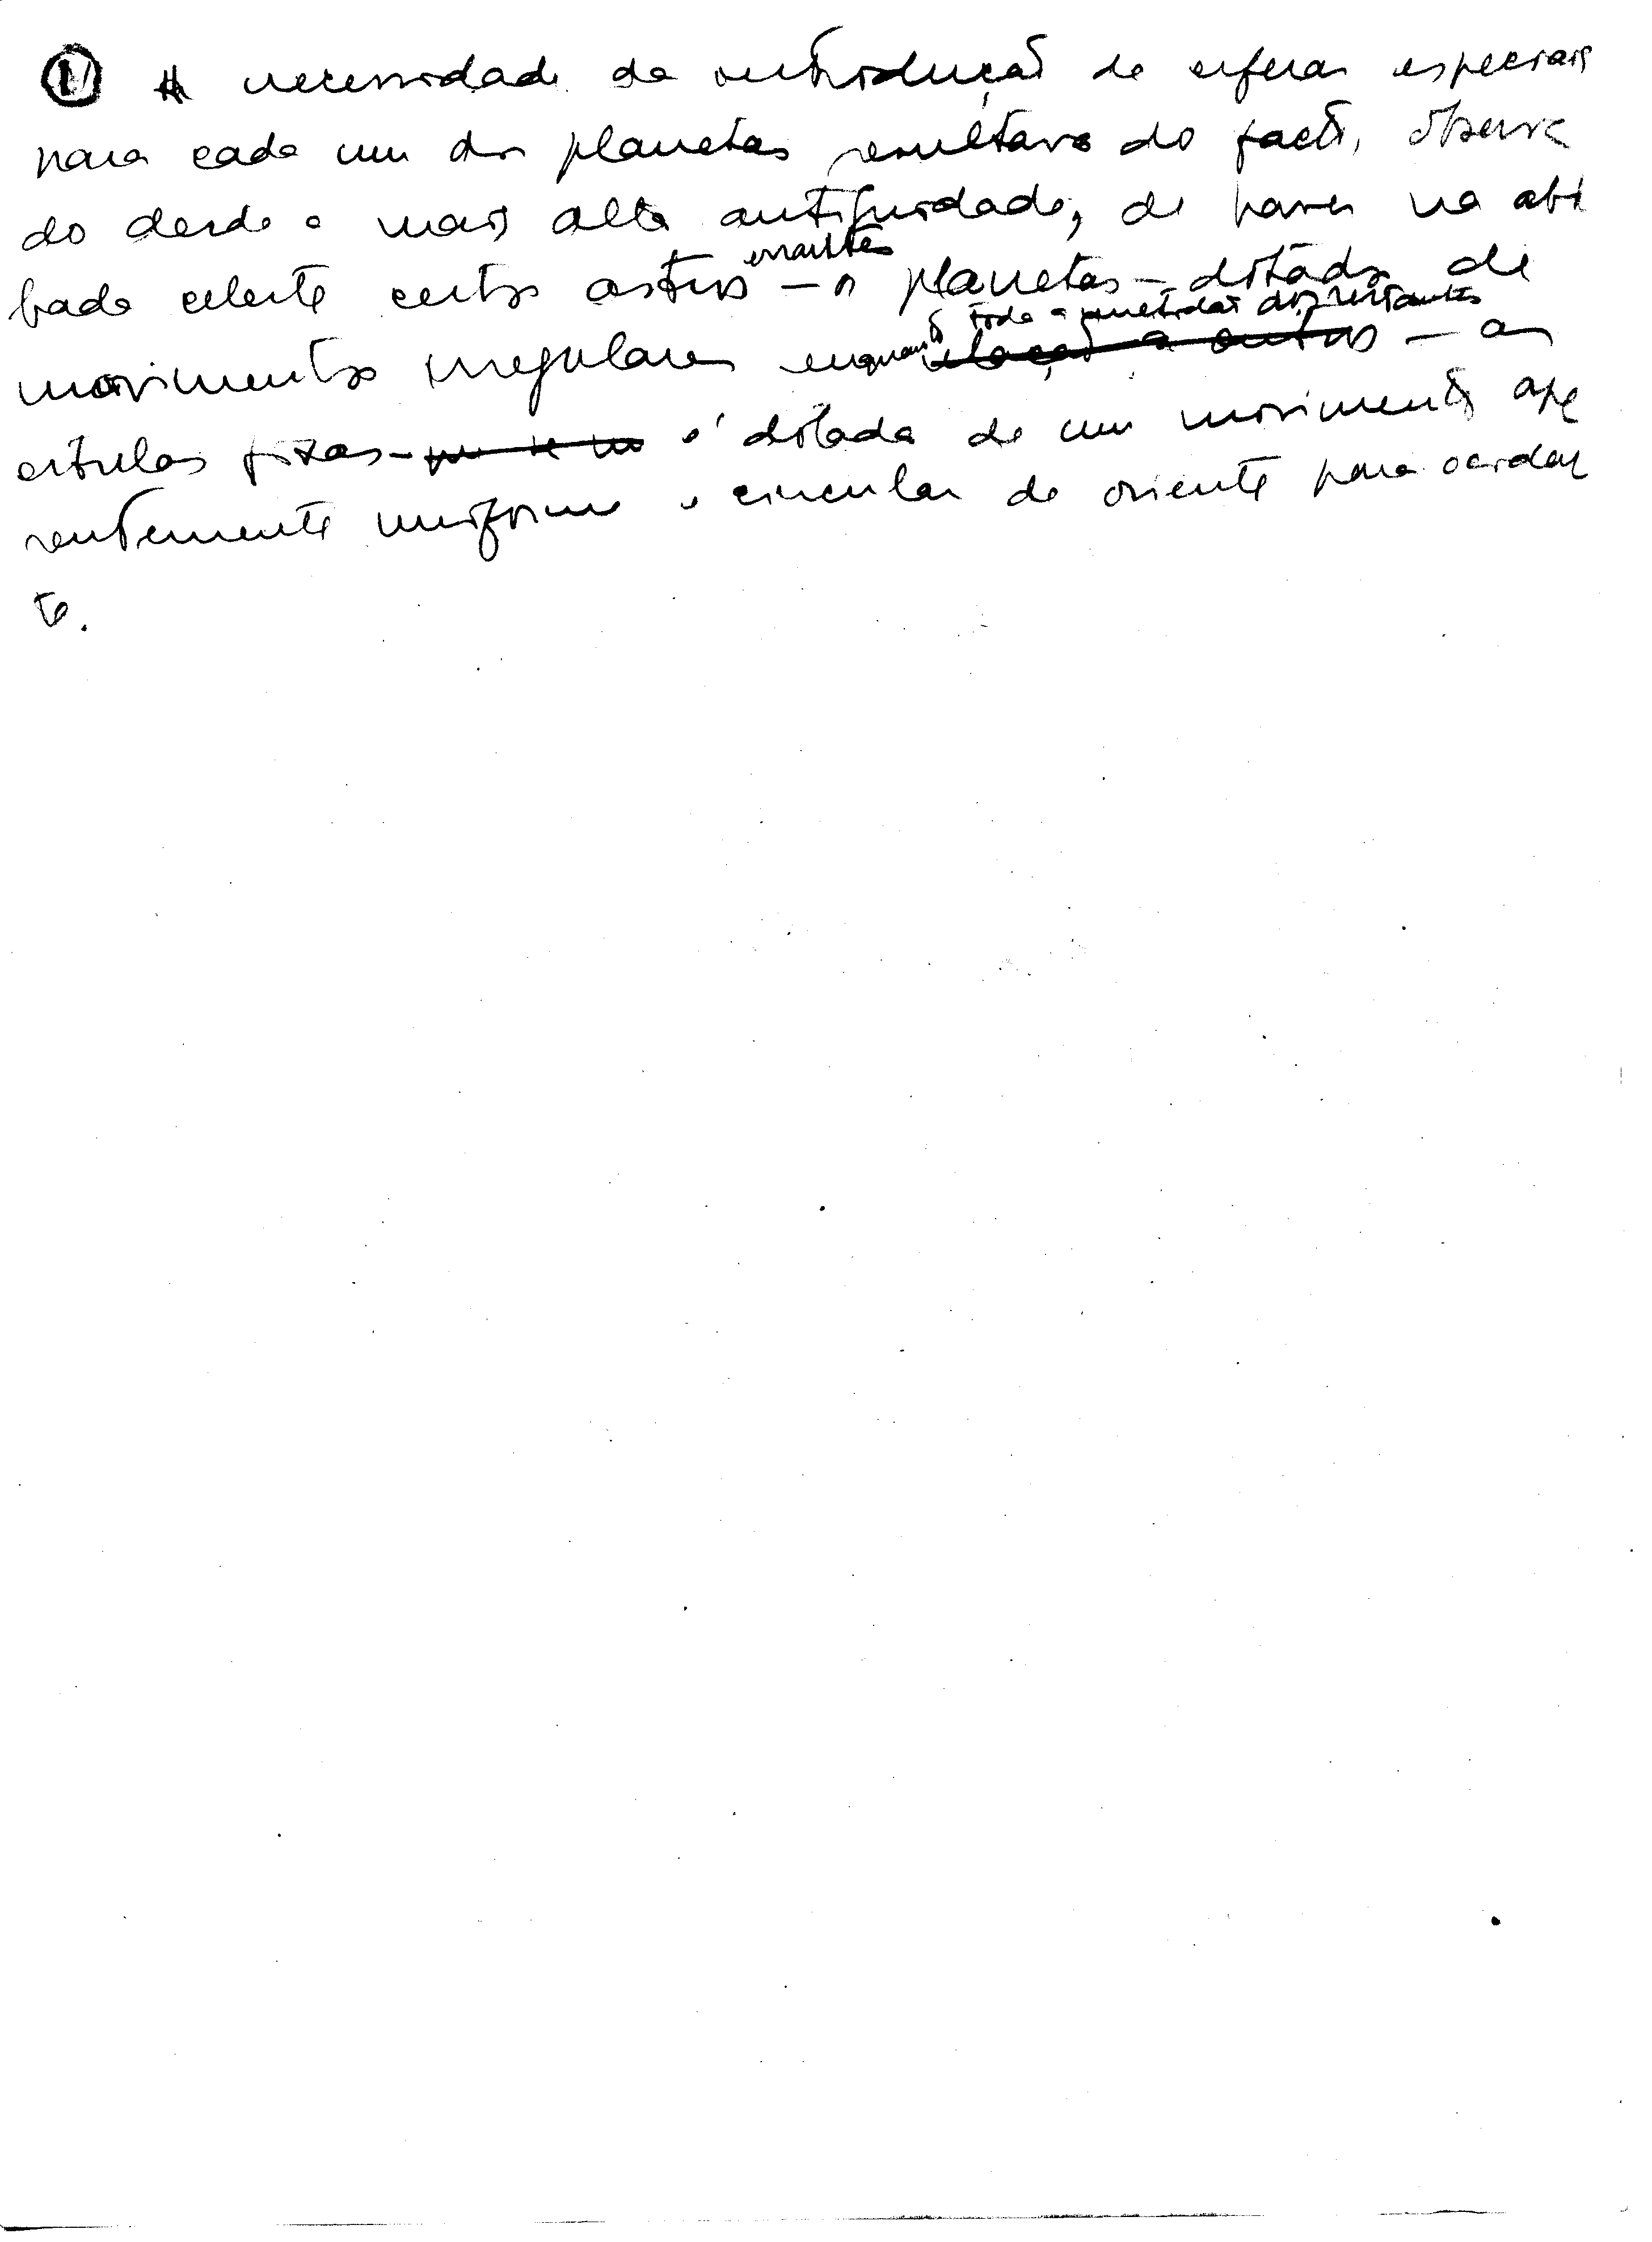 1) A necessidade da introdução de esferas especiais
para cada um dos planetas resultava do facto, observa
do desde a mais alta antiguidade, de haver na abó
bada celeste certos astros errantes — os planetas — dotados de
movimentos irregulares enquanto toda a multidão dos restantes — as
estrelas fixas — é dotada de um movimento apa
rentemente uniforme e circular de oriente para ociden
te.